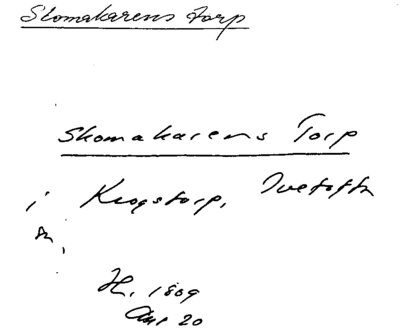 Skomakarens torp
Skomakarens Torp
i Krogstorp, Ivetofta
sn,
H. 1809